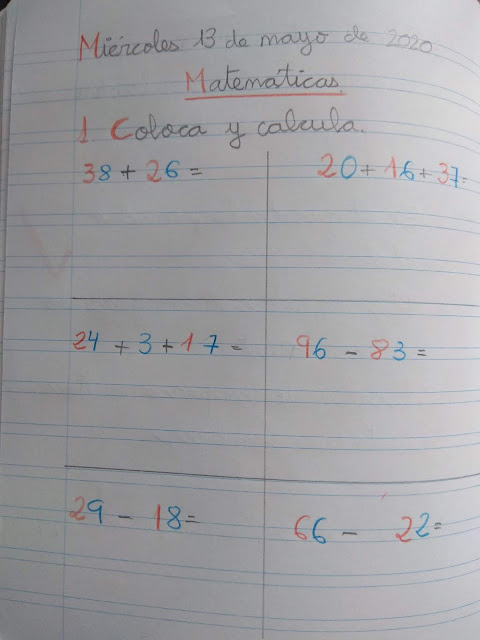 Miércoles 13 de mayo de 2020
Matemáticas.
1 Coloca y calcula.
38 + 26 =
20 + 16 + 37 =
24 + 3 + 17 =
96 - 83 =
29 - 18 =
66 - 22 =